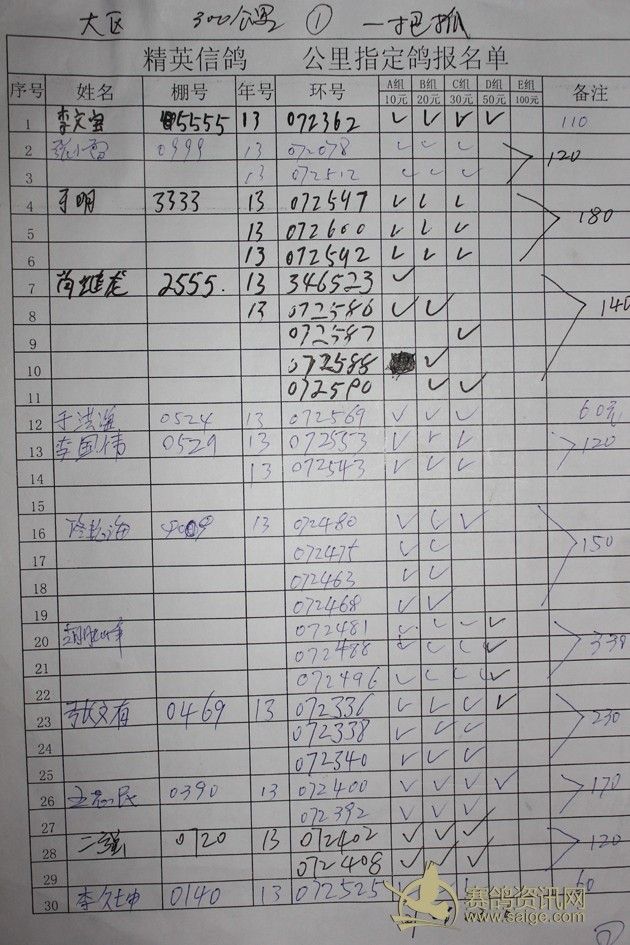 大区 300公里 ① 一把抓
精英信鸽 公里指定鸽报名单
序号 姓名 棚号 年号 环号 A组 10元 B组 20元 C组 30元 D组 50元 E组 100元 备注
1 5555 13 072362 ✓ ✓ ✓ ✓ 110
2 0999 13 072078 ✓ ✓ ✓ 120
3 13 072512 ✓ ✓ ✓
4 于明 3333 13 072547 ✓ ✓ ✓ 180
5 13 072600 ✓ ✓ ✓
6 13 072542 ✓ ✓ ✓
7 2555. 13 346523 ✓ 140
8 13 072586 ✓ ✓
9 072587 ✓
10 072588 ✓
11 072590 ✓ ✓
12 0524 13 072569 ✓ ✓ ✓ 60元
13 李国伟 0529 13 072553 ✓ ✓ ✓ 120
14 13 072543 ✓ ✓ ✓
15
16 13 072480 ✓ ✓ ✓ 150
17 072475 ✓ ✓
18 072463 ✓ ✓
19 072468 ✓ ✓
20 072481 ✓ ✓ ✓ ✓ 330
21 072488 ✓ ✓ ✓ ✓
22 072496 ✓ ✓ ✓ ✓
23 张文有 0469 13 072336 ✓ ✓ ✓ ✓ 230
24 072338 ✓ ✓ ✓
25 072340 ✓ ✓ ✓
26 0390 13 072400 ✓ ✓ ✓ ✓ 170
27 072392 ✓ ✓ ✓
28 二强 0720 13 072402 ✓ ✓ ✓ 120
29 072408 ✓ ✓ ✓
30 0140 13 072525 60
赛鸽资讯网
www.saige.com